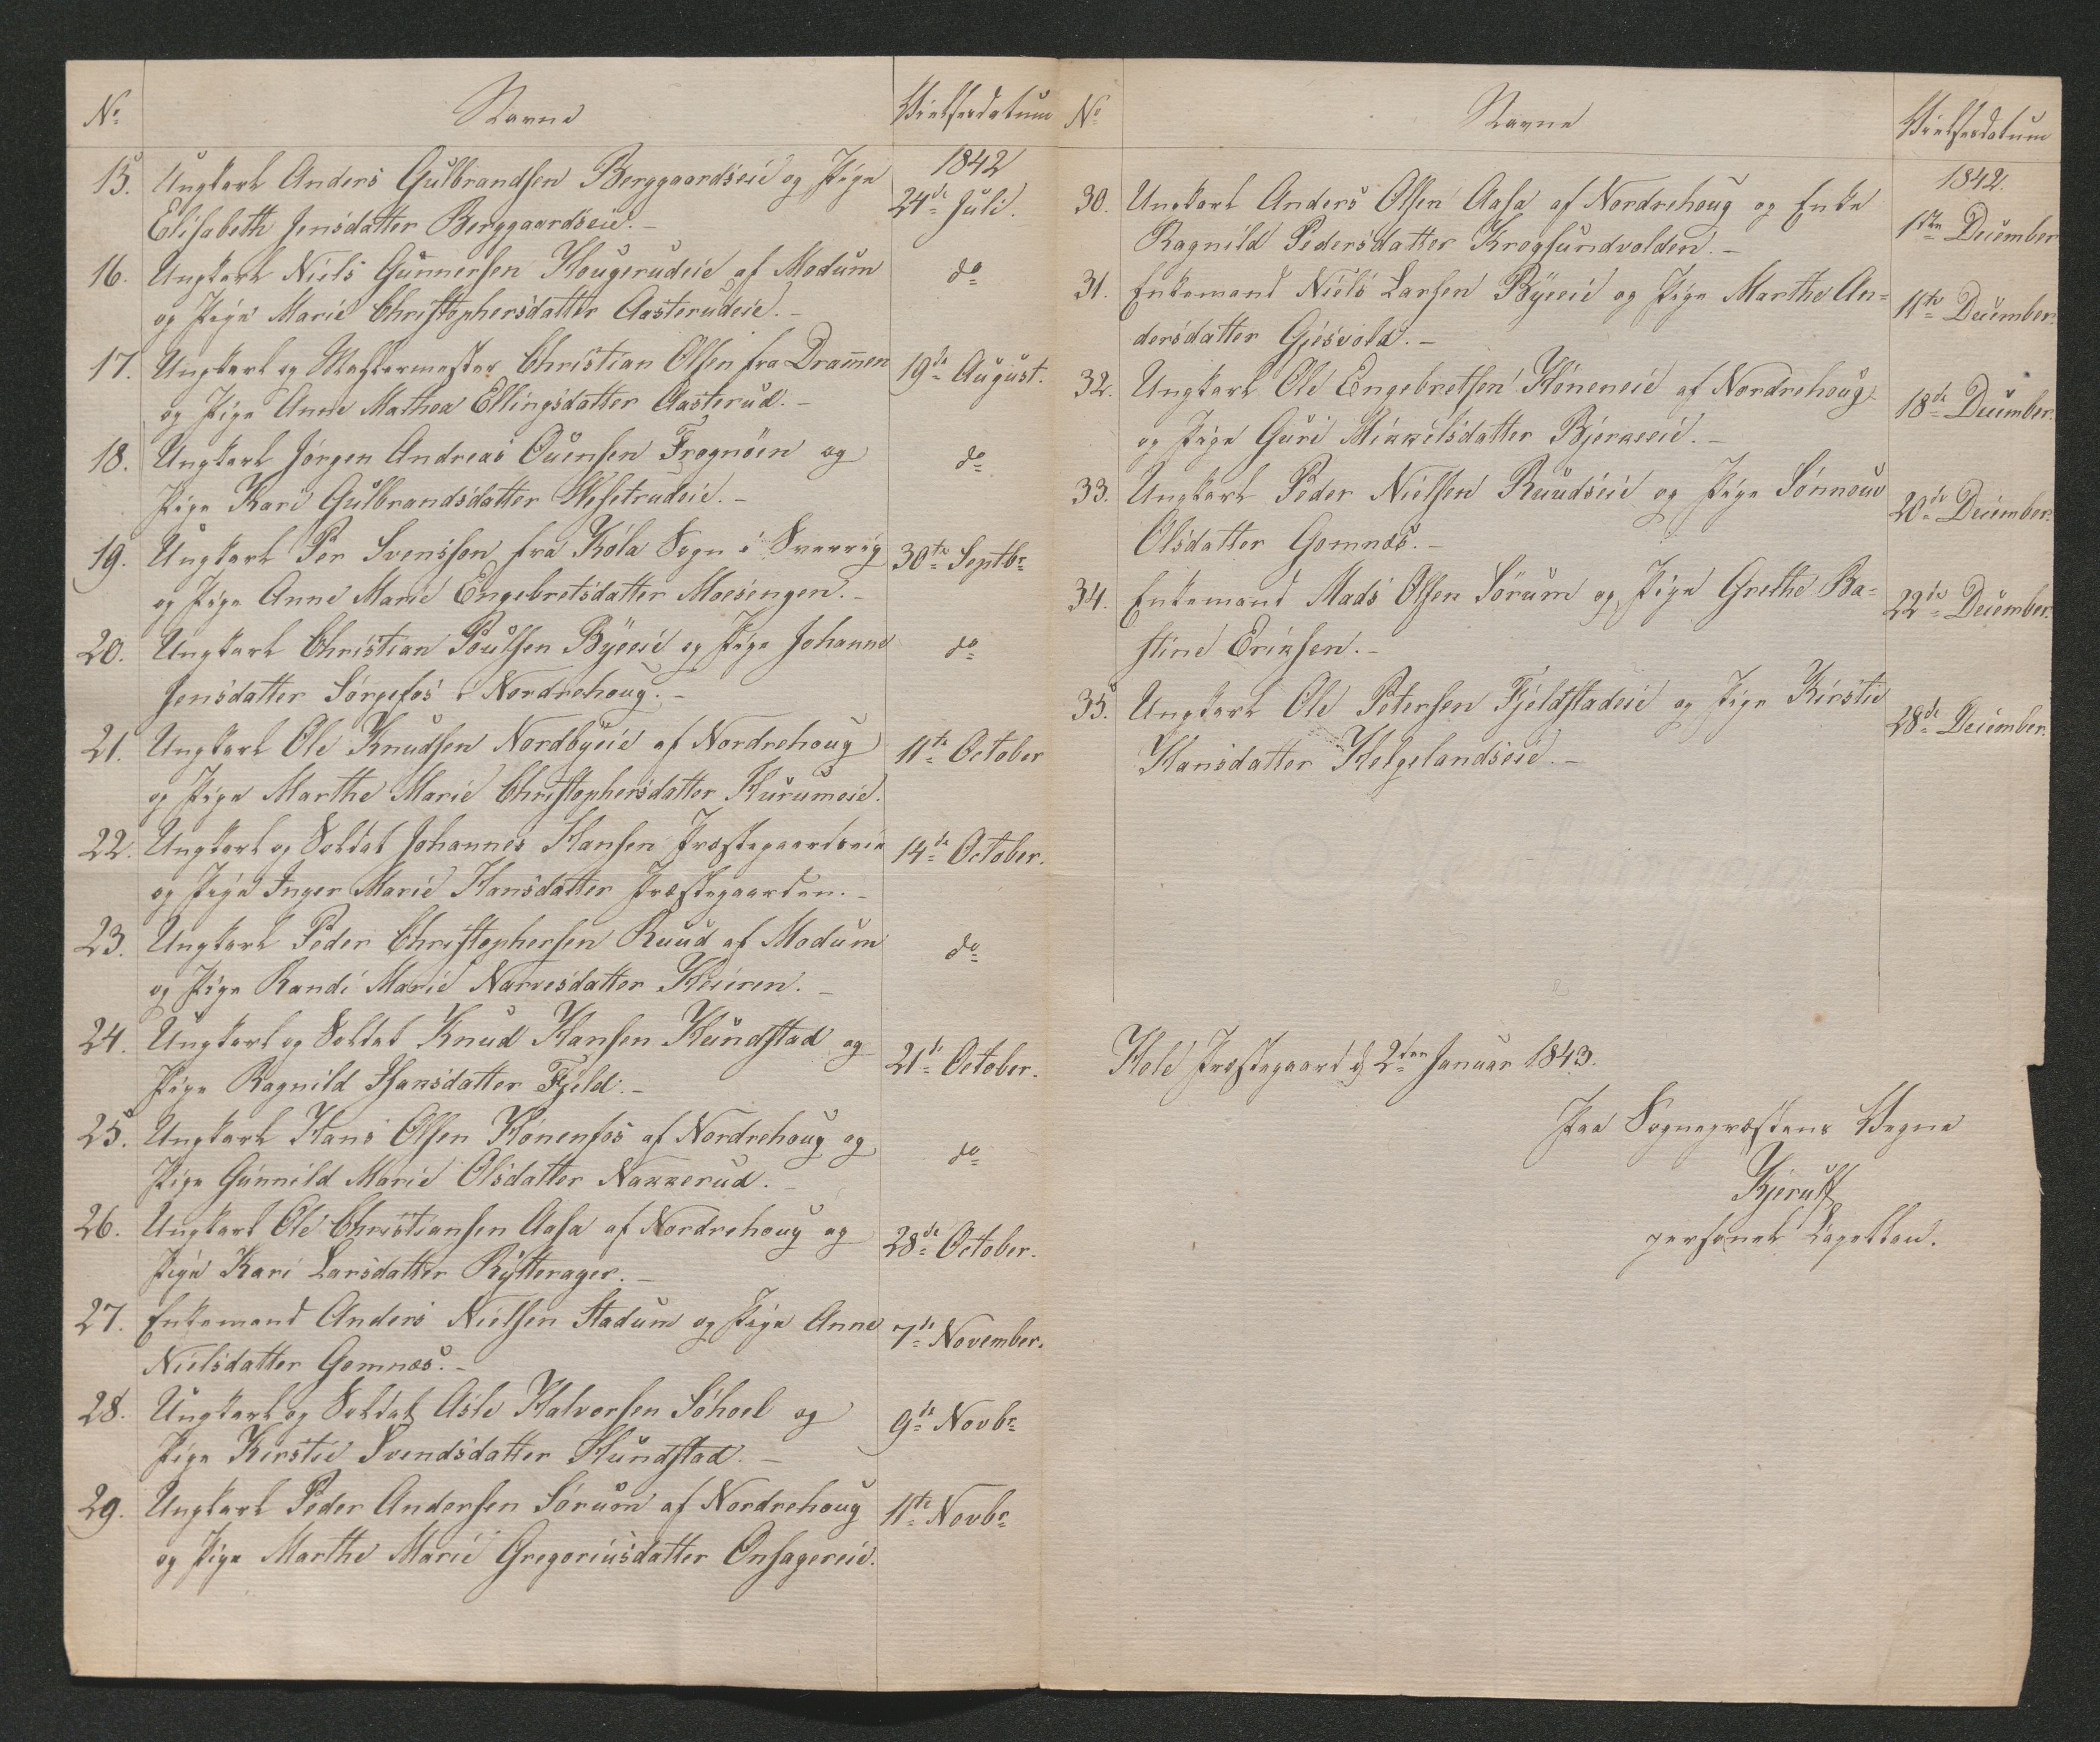 No
Navne
Vielsesdatum
1842
15. Ungkarl Anders Gulbrandsen Berggaardseie og Pige
Elisabeth Jensdatter Berggaardseie. -
24de Juli.
16. Ungkarl Niels Gunnersen Hougerudeie af Modum
og Pige Marie Christophersdatter Aasterudeie. -
do
17. Ungkarl og Christian Olsen fra Dram̅en
og Pige Anne Mathea Ellingsdatter Aasterud. -
19de August.
18. Ungkarl Jörgen Andreas Ouensen Frognöen og
Pige Kari Gulbrandsdatter Vesetrudeie. -
do
19. Ungkarl Per Svensson fra Köla Sogn i Sverrig
og Pige Anne Marie Engebretsdatter Moesengen. -
30te Septbr
20. Ungkarl Christian Poulsen Byeeie og Pige Johanne
Jensdatter Sörgefos i Nordrehoug. -
do
21. Ungkarl Ole Knudsen Nordbyeie af Nordrehoug
og Pige Marthe Marie Christophersdatter Hurumeie.
11te October
22. Ungkarl og Soldat Johannes Hansen Præstegaardseie
og Pige Inger Marie Hansdatter Præstegaarden. -
14de October.
23. Ungkarl Peder Christophersen Ruud af Modum
og Pige Randi Marie Narvesdatter Heieren. -
do
24. Ungkarl og Soldat Knud Hansen Hundstad og
Pige Ragnild Isaksdatter Fjeld. -
21de October.
25. Ungkarl Hans Olsen Hönenfos af Nordrehoug og
Pige Gunnild Marie Olsdatter Nakkerud. -
do
26. Ungkarl Ole Christiansen Aasa af Nordrehoug og
Pige Kari Larsdatter Rytterager. -
28de October.
27. Enkemand Anders Nielsen Stadum og Pige Anne
Nielsdatter Gomnæs. -
7de November.
28. Ungkarl og Soldat Asle Halvorsen Söhoel og
Pige Kirstie Svendsdatter Hundstad. -
9de Novbr
29. Ungkarl Peder Andersen Sörum af Nordrehoug
og Pige Marthe Marie Gregoriusdatter Onsagereie.
11te Novbr
No
Navne
Vielsesdatum
1842.
30. Ungkarl Anders Olsen Aasa af Nordrehoug og Enke
Ragnild Pedersdatter Krogsundvolden. -
1ste December
31. Enkemand Niels Larsen Byeeie og Pige Marthe An=
dersdatter Gjesvold. -
11te December.
32. Ungkarl Ole Engebretsen Höneneie af Nordrehoug
og Pige Guri Mikkelsdatter Bjerkeeie. -
18de December.
33. Ungkarl Peder Nielsen Ruudseie og Pige Sönnouv
Olsdatter Gomnæs. -
20de December.
34. Enkemand Mads Olsen Sörum og Pige Grethe Ba=
stine Eriksen. -
22de December.
35. Ungkarl Ole Petersen Fjeldstadeie og Pige Kirstie
Hansdatter Helgelandseie. -
28de December.
Hole Præstegaard d 2den Januar 1843.
Paa Sognepræstens Vegne
Kjerulf
personel Capellan.